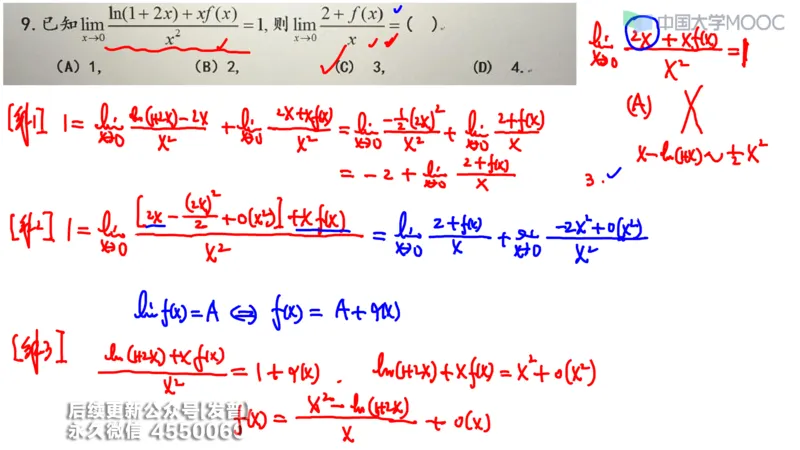 中国大学MOOC
9. 已知 lim x→0 (ln(1+2x)+xf(x))/x² = 1, 则 lim x→0 (2+f(x))/x = ( ).
(A) 1, (B) 2, (C) 3, (D) 4.
lim x→0 (2x+xf(x))/x² = 1
(A) X
x-ln(1+x)~½x²
[解1] 1 = lim x→0 (ln(1+2x)-2x)/x² + lim x→0 (2x+xf(x))/x² = lim x→0 (-½(2x)²)/x² + lim x→0 (2+f(x))/x
= -2 + lim x→0 (2+f(x))/x
3.
[解2] 1 = lim x→0 ([2x-(2x)²/2+o(x²)]+xf(x))/x² = lim x→0 (2+f(x))/x + lim x→0 (-2x²+o(x²))/x²
lim f(x)=A ⇔ f(x)=A+α(x)
[解3] (ln(1+2x)+xf(x))/x² = 1+α(x). ln(1+2x)+xf(x)=x²+o(x²)
f(x) = (x²-ln(1+2x))/x + o(x)
后续更新公众号[发普]
永久微信 455006